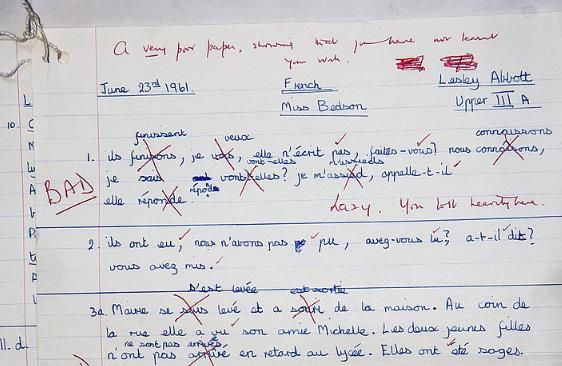 A very poor paper, showing that you have not learnt
your work.
June 23rd 1961. French Lesley Abbott
Miss Bedson Upper III A
finissent veux connaissons
1. ils finissons, je vois, elle n'écrit pas, faites-vous? nous connaisons,
vont-elles m'assieds
je sais vont elles? je m'assied, appelle-t-il
BAD
répond
elle réponde. Lazy. You lost heavily here.
2. ils ont eu, nous n'avons pas pu, avez-vous lu? a-t-il dit?
vous avez mis.
s'est levée est sortie
3a. Marie se sous levé et a sorti de la maison. Au coin de
la rue elle a vu son amie Michelle. Les deux jeunes filles
ne sont pas arrivées
n'ont pas arrivé en retard au lycée. Elles ont été sages.
10.
L
C
N
W
A
V
P
ta
A
V
11. d.